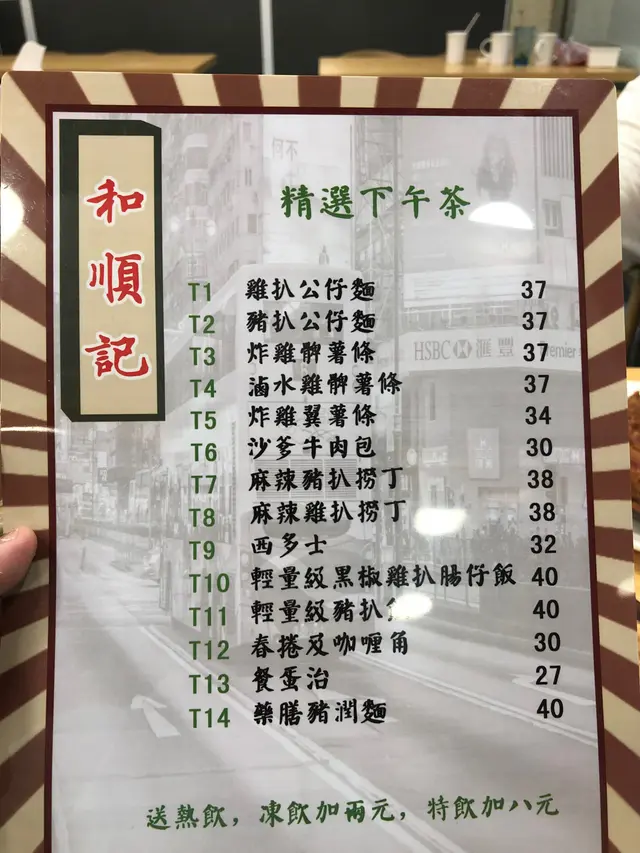 和順記
精選下午茶
T1 雞扒公仔麵 37
T2 豬扒公仔麵 37
T3 炸雞髀薯條 37
T4 滷水雞髀薯條 37
T5 炸雞翼薯條 34
T6 沙爹牛肉包 30
T7 麻辣豬扒撈丁 38
T8 麻辣雞扒撈丁 38
T9 西多士 32
T10 輕量級黑椒雞扒腸仔飯 40
T11 輕量級豬扒 40
T12 春捲及咖喱角 30
T13 餐蛋治 27
T14 藥膳豬潤麵 40
送熱飲，凍飲加兩元，特飲加八元
HSBC 匯豐 Premier